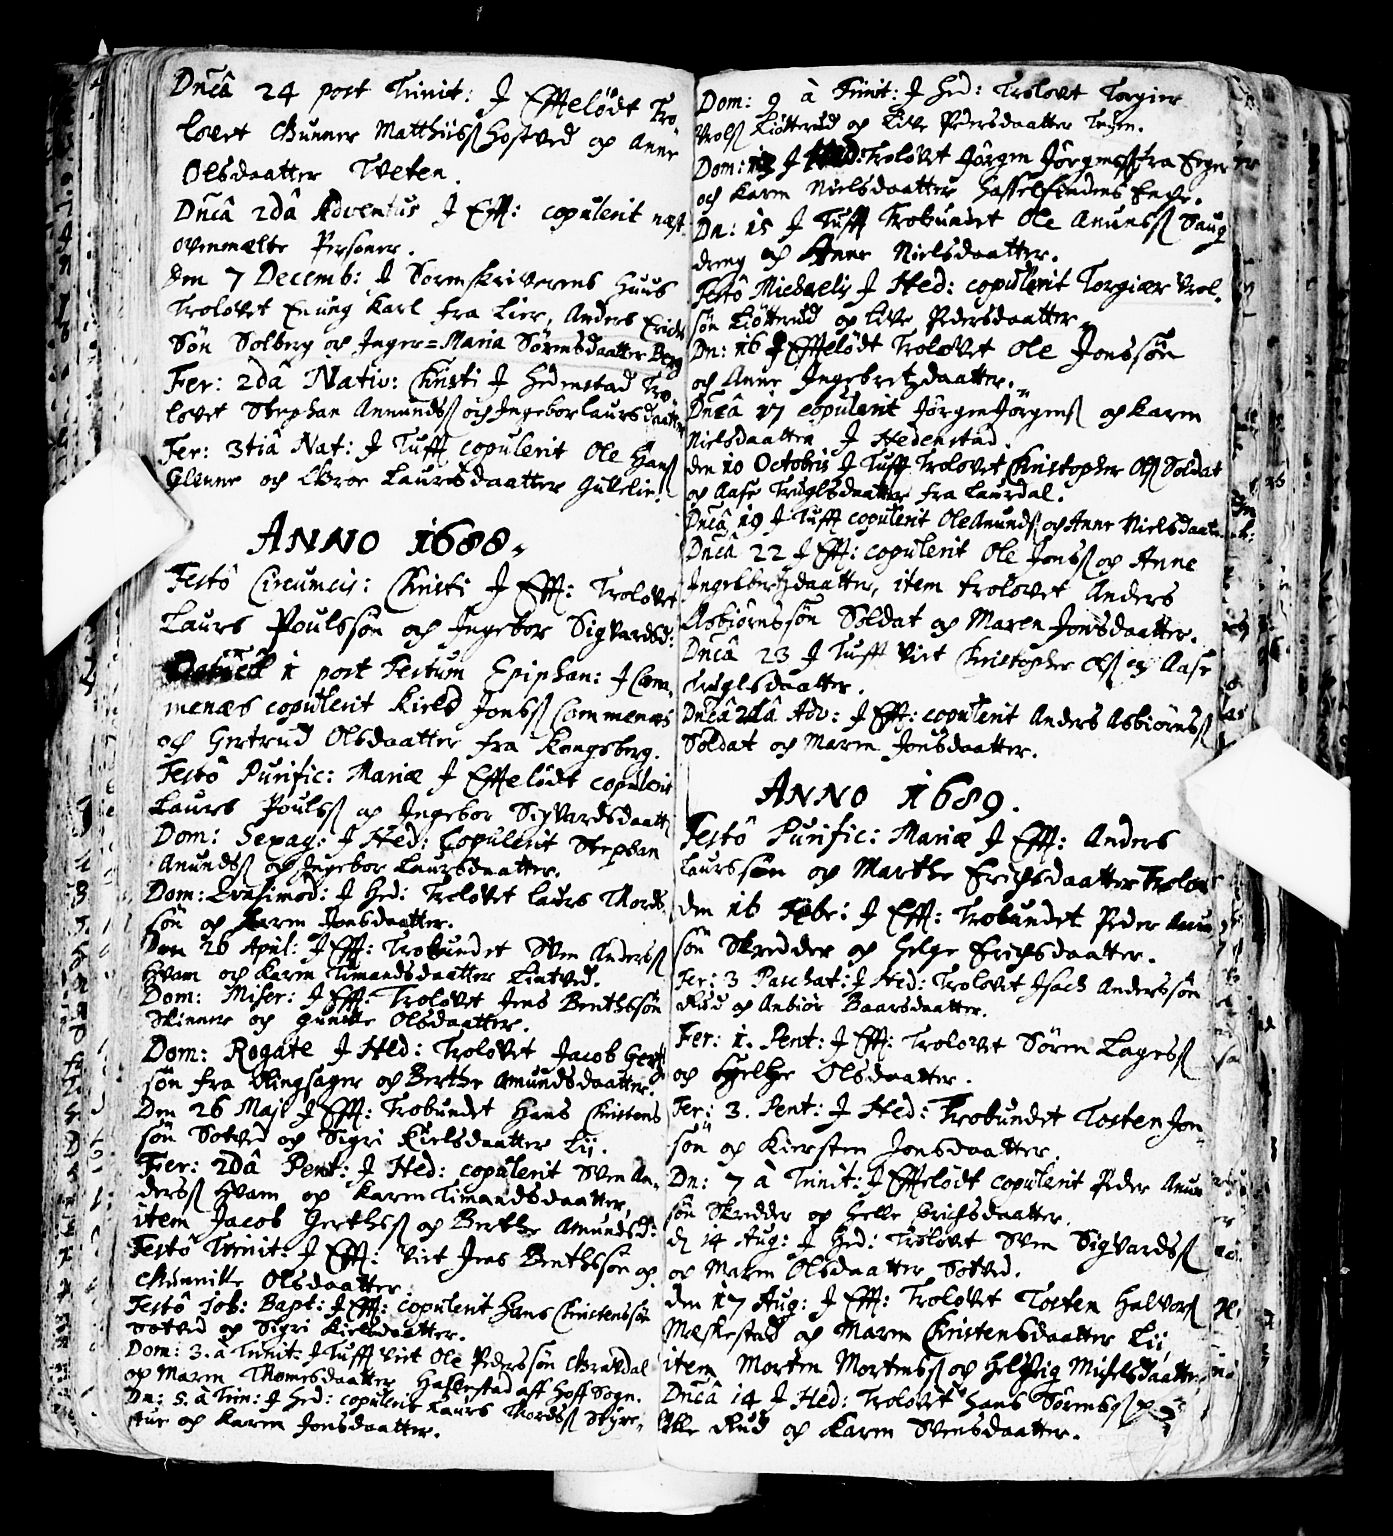 Dn̄câ 24 post Trinit: J Effteelödt Tro
lovet Gunner Matthiisſ Hostved og Anne
Olsdaatter Tveten.
Dn̄câ 2dâ Adventus J Efft: copulerit næst
ovenmælte Personer.
den 7 Decemb: J Sorenskriverens Huus
Trolovet En ung Karl fra Lier, Anders Erichs
Sön Solberg og Inger=Maria Sörensdaatter Berg
Fer: 2dâ Nativ: Christi J Hedenstad Tro
lovet Stephan Anundsſ och Ingebor Laursdaatter
Fer: 3tiâ Nat: J Tufft copulerit Ole Hansſ
Glenne och Laursdaatter
ANNO 1688.
Festô Circumcis: Christi J Efft: Trolovet
Laurs Poulssön och Ingebor Sigvardsd:
1 post Festum Epiphan: J Com
menæs copulerit Kield Jonsſ Commenæs
och Gertrud Olsdaatter fra Kongsberg.
Festô Purific: Mariæ J Effteelödt copulerit
Laurs Poulsſ og Ingebor Sigvardsdaatt
Dom: Sexag: J Hed: Copulerit Stephan
Anundsſ och Ingebor Laursdaatter.
Dom: Qvasimod: J Hed: Trolovet Laurs Thords
sön og Karen Jonsdaatter.
Den 26 April: J Efft: Trobundet Sven Andersſ
Hvam och Karen Timandsdaatter Lintved.
Dom: Miser: J Efft: Trolovet Jens Benthssön
Skinner og Gunille Olsdaatter.
Dom: Rogate J Hed: Trolovet Jacob Gert
sön fra Ringsager och Berthe Amundsdaatter.
Den 26 Maji J Efft: Trobundet Hans Christens
sön Sotved og Sigri Kielsdaatter Lij.
Fer: 2dâ Pent: J Hed: copulerit Sven An
dersſ Hvam og Karen Timandsdaatter,
item Jacob Gerthsſ og Berthe Amundsd:
Festô Trinit: J Efft: Viet Jens Benthssön og
Gunnille Olsdaatter.
Festô Joh: Bapt: J Efft: copulerit Hans Christenssön
Sotved og Sigri Kielsdaatter.
Dom: 3. à Trinit: J Tufft Viet Ole Pederssön Gravdal
og Maren Thomesdaatter Haslestad aff Hoff Sogn.
Dn: 5. à Trin: J Hed: copulerit Laurs Thordsſ Styr
stue og Karen Jonsdaatter.
Dom: 9 à Trinit: J Hed: Trolovet Torgier
Trolsſ Liötterud og Live Pedersdaatter
Dom: J Hed: Trolovet Jörgen Jörgensſ fra Eger
och Karen Nielsdaatter
Dn: 15 J Tufft Trobundet Ole Anunsſ Saug
dreng og Anne Nielsdaatter.
Festô Michaelis J Hed: copulerit Torgiær Trol
sön Liötterud og Live Pedersdaatter.
Dn: 16 J Effteelödt Trolovet Ole Jonssön
och Anne Ingebretzdaatter.
Dn̄câ 17 copulerit Jörgen Jörgensſ og Karen
Nielsdaatter J Hedenstad.
den 10 Octobris J Tufft Trolovet Christopher Olsſ Soldat
og Aase Truglsdaatter fra Laurdal.
Dn̄câ 19 J Tufft copulerit Ole Anundsſ og Anne Nielsdaatr
Dn̄câ 22 J Efft: copulerit Ole Jonsſ og Anne
Ingebretzdaatter, item trolovet Anders
Asbiörnssön Soldat og Maren Jonsdaatter.
Dn̄câ 23 J Tufft Viet Christopher Olsſ og Aase
Truglsdaatter.
Dn̄câ 2dâ Adv: J Efft: copulerit Anders Asbiörnsſ
Soldat och Maren Jonsdaatter.
ANNO 1689.
Festô Purific: Mariæ J Efft: Anders
Laurssön och Marthe Erichsdaatter Trolov
den 16 Febr: J Efft: Trobundet Peder Anun
sön Skredder og Helge Erichsdaatter.
Fer: 3 Paschat: J Hed: Trolovet Isach Anderssön
Rud og Anbiör Baarsdaatter.
Fer: 1. Pent: J Efft: Trolovet Sören Lagesſ
og Helge Olsdaatter.
Fer: 3. Pent: J Hed: Trobundet Tosten Jon
sön og Kiersten Jonsdaatter.
Dn: 7 à Trinit: J Effteelödt copulerit Peder Anun
sön Skredder og Helle Erichsdaatter.
d 14 Aug: J Hed: Trolovet Sven Sigvardsſ
og Maren Olsdaatter Sotved.
den 17 Aug: J Efft: Trolovet Tosten Halvorsſ
Mæskestad og Maren Christensdaatter Lij,
item Morten Mortensſ og Helvig Michelsdaatter,
Dn̄câ 14 J Hed: Trolovet Hans Sörensſ
Rud og Karen Svensdaatter.